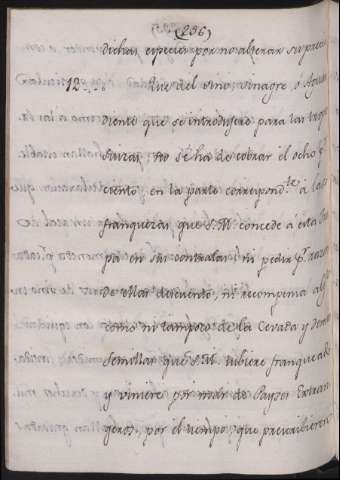 (296)
dichas especies por no alterar su precio
12... Que del vino, vinagre, ó Aguar
diente que se introdujere para las tropas
Suizas, no se ha de cobrar el ocho p.r
ciento, en la parte correspond.te a las
franquezas que S.M. concede a esta Tro
pa en sus contratas, ni pedir p.r razon
de ellas descuento, ni recompensa alg.a
como ni tampoco de la Cevada y demas
Semillas que S.M. ubiere franqueado
y viniere por mar de Payses Extran
geros, por el tiempo, que prescribieren